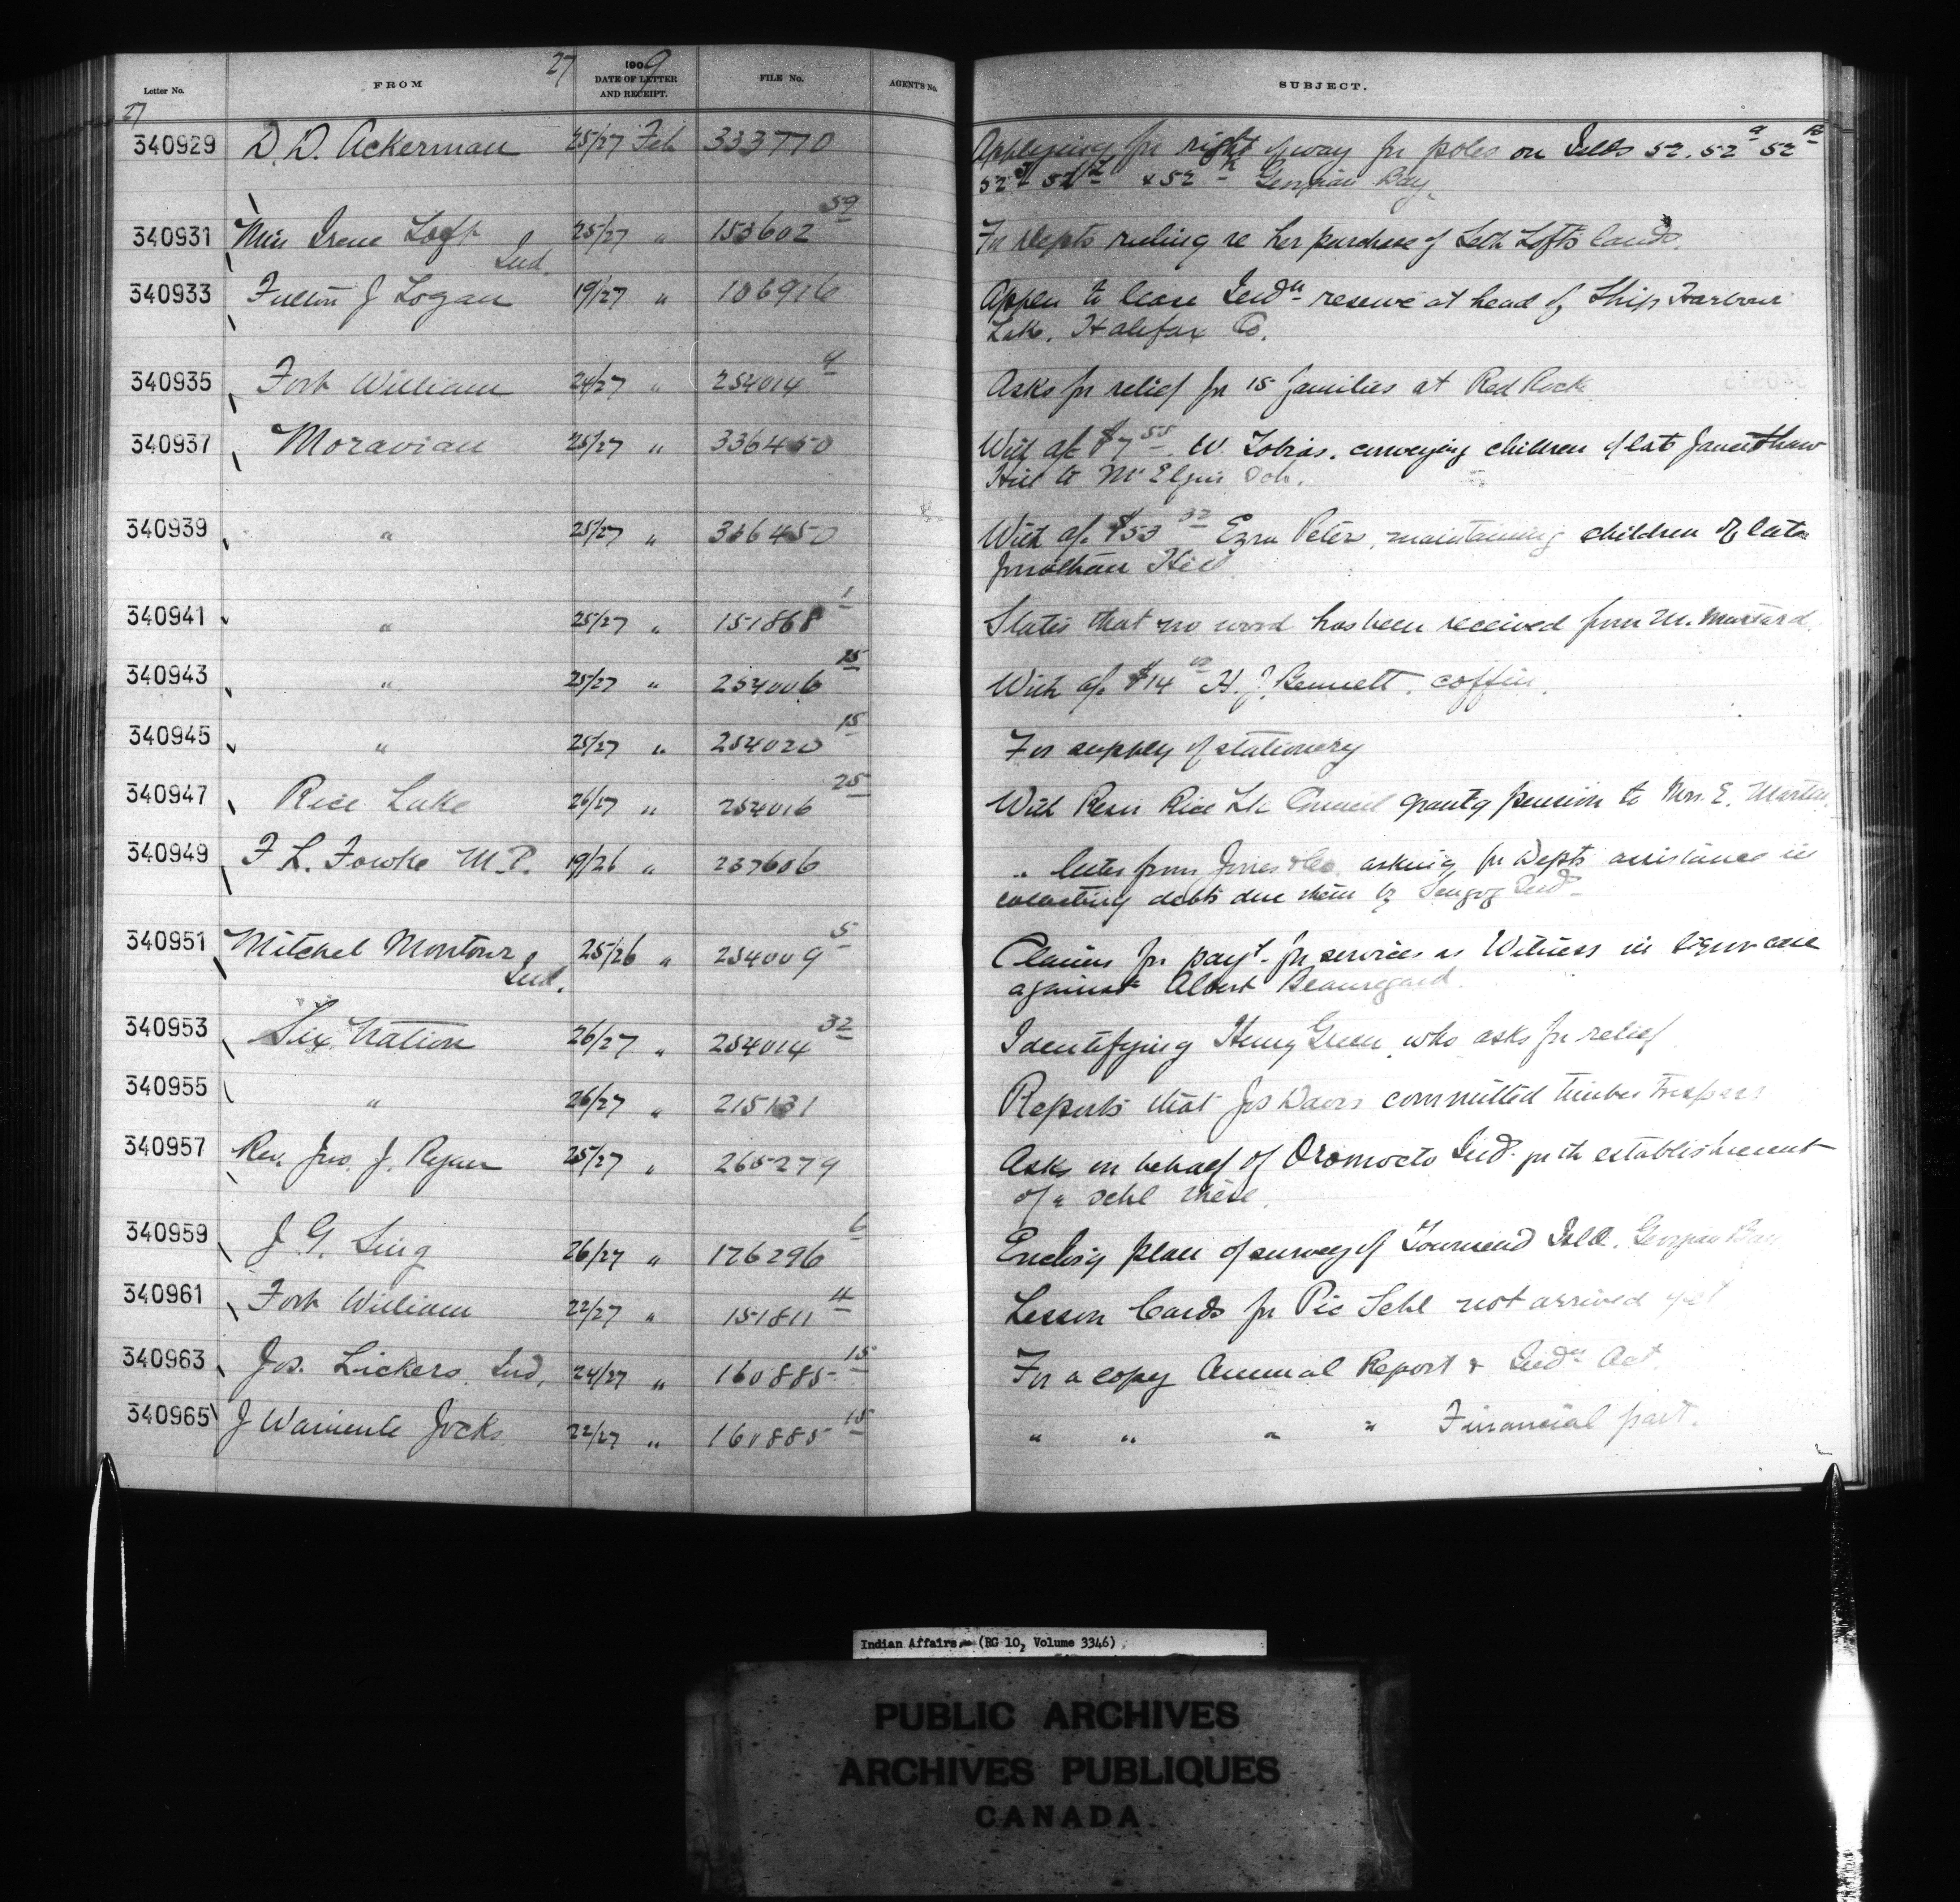 27 1909
Letter No. FROM DATE OF LETTER AND RECEIPT. FILE No. AGENT'S No. SUBJECT.
27
340929 D. D. Ackerman 25/27 Feb 333770 Applying for right of way for poles on Islds 52. 52a 52
52 52 & 52 Georgian Bay.
340931 Miss Irene Loft Ind. 25/27 " 153602 59 For Depts ruling re her purchase of Seth Loft's land.
340933 Fulton J Logan 19/27 " 106916 Appln to lease Indn reserve at head of Ship Harbour
Lake. Halifax Co.
340935 Fort William 24/27 " 254014 4 Asks for relief for 15 families at Red Rock
340937 Moravian 25/27 " 336450 With a/c $7 55 W. Tobias. conveying children of late
Hill to Mt Elgin Sch.
340939 " 25/27 " 336450 With a/c $53 32 Ezra Peter, maintaining children of late
Jonathan Hill
340941 " 25/27 " 151868 1 States that no word has been received from M. Mustard.
340943 " 25/27 " 254006 15 With a/c $14 H. J. Bennett. coffin.
340945 " 25/27 " 254020 15 For supply of stationery
340947 Rice Lake 26/27 " 254016 25 With Resn Rice Lk Council grantg pension to Mrs. E. Marten
340949 F L. Fowke M.P. 19/26 " 237606 " letter from Jones & Co. asking for Depts assistance in
collecting debts due them by Scugog Inds
340951 Mitchel Montour Ind. 25/26 " 254009 5 Claims for payt for services as Witness in liquor case
against Albert Beauregard.
340953 Six Nation 26/27 " 254014 32 Identifying Henry Green, who asks for relief
340955 " 26/27 " 215131 Reports that Jos Davis committed timber trespass
340957 Rev. Jno. J. Ryan 25/27 " 265279 Asks on behalf of Oromocto Inds for th establishment
of a schl there.
340959 J. G. Sing 26/27 " 176296 6 Enclosg plan of survey of Townsend Isld. Georgian Bay
340961 Fort William 22/27 " 151811 4 Lesson Cards for Pic Schl not arrived yet
340963 Jos. Lickers. Ind. 24/27 " 160885 15 For a copy Annual Report & Indn Act.
340965 J Jocks 22/27 " 160885 15 " " " " Financial part.
Indian Affairs. (RG 10, Volume 3346)
PUBLIC ARCHIVES
ARCHIVES PUBLIQUES
CANADA